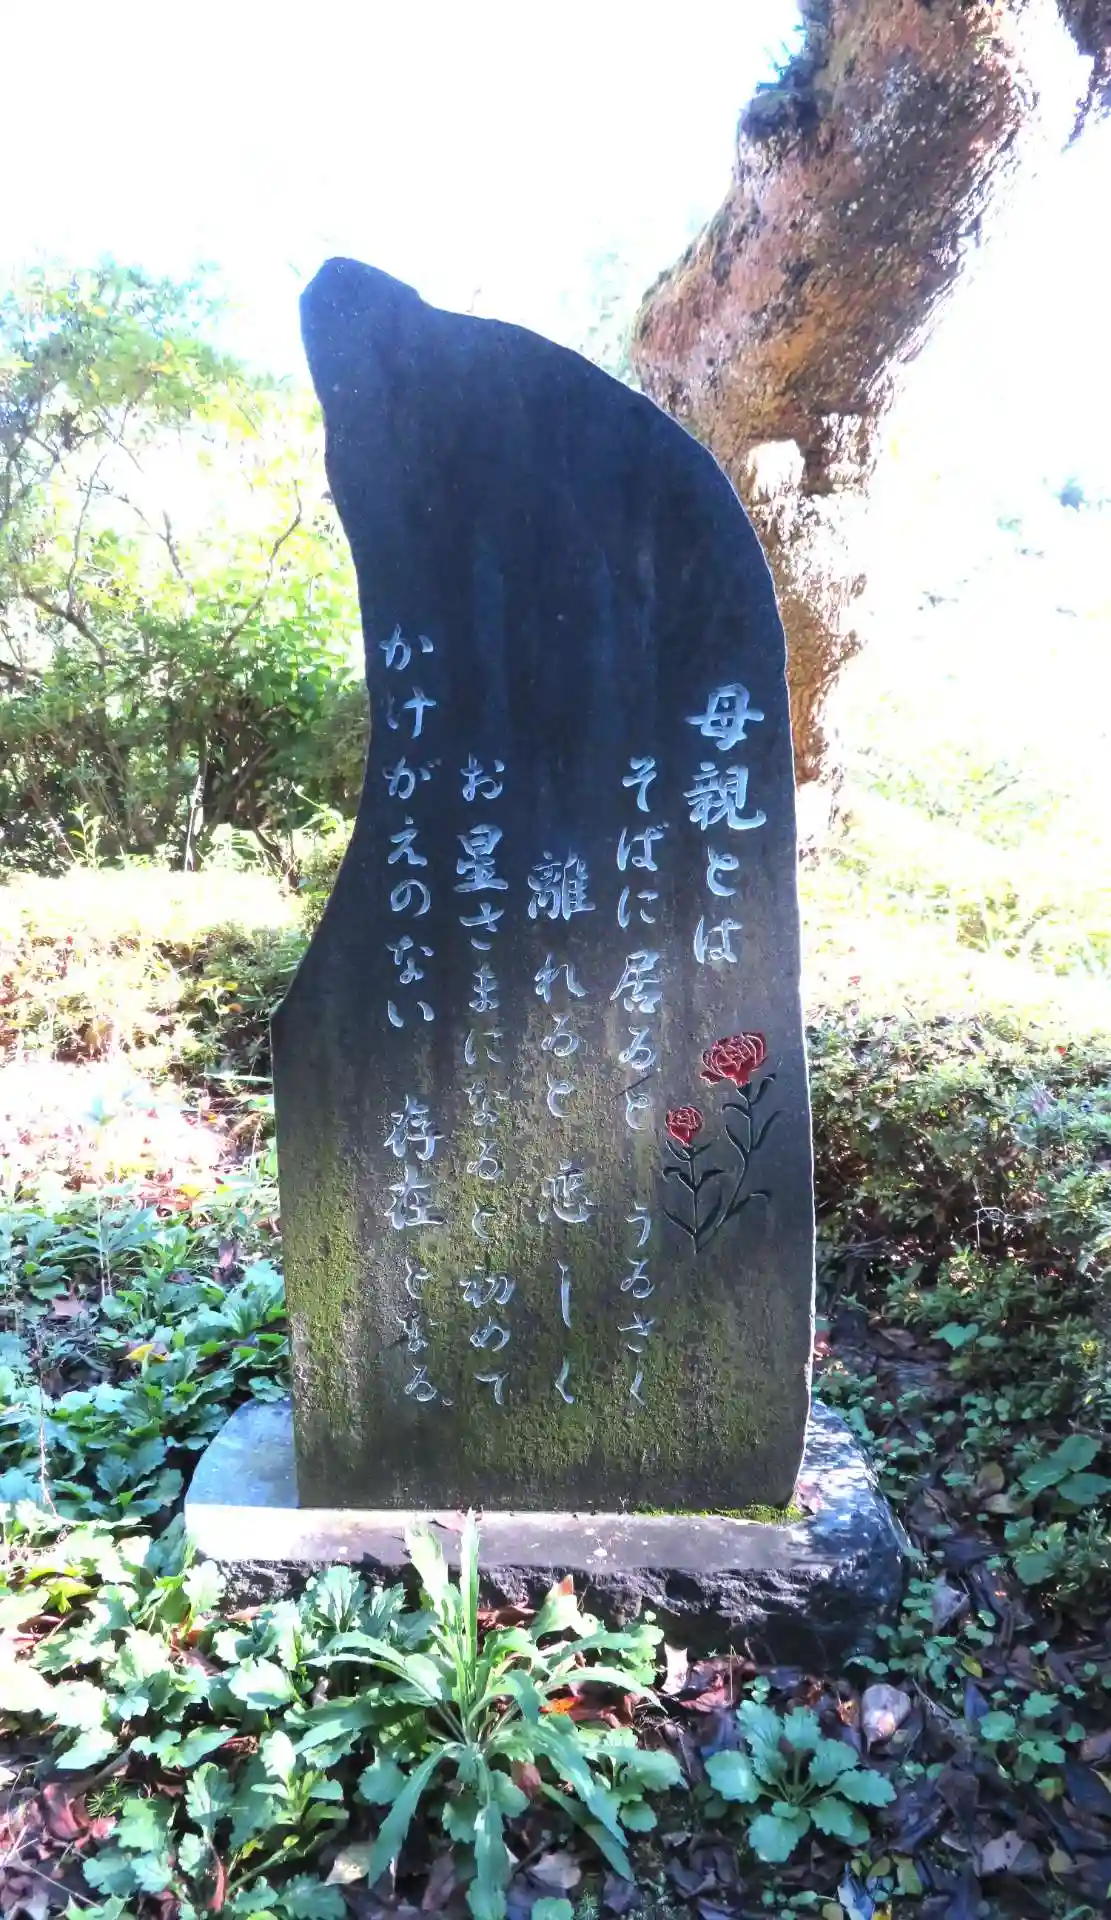 母親とは
そばに居ると うるさく
離れると 恋しく
お星さまになると初めて
かけがえのない 存在となる